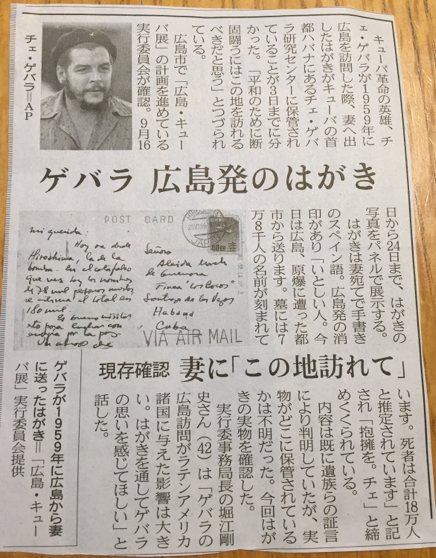 キューバ革命の英雄、チ
ェ・ゲバラが1959年に
広島を訪問した際、妻へ出
したはがきがキューバの首
都ハバナにあるチェ・ゲバ
ラ研究センターに保管され
ていることが3日までに分
かった。「平和のために断
固闘うにはこの地を訪れる
べきだと思う」とつづられ
ている。
広島市で「広島・キュー
バ展」の計画を進めている
実行委員会が確認。9月16
チェ・ゲバラ＝AP
ゲバラ 広島発のはがき
日から24日まで、はがきの
写真をパネルで展示する。
はがきは妻宛てで手書き
のスペイン語。広島発の消
印があり「いとしい人。今
日は広島、原爆に遭った都
市から送ります。墓には7
万8千人の名前が刻まれて
POST CARD
mi querida:
Hoy va desde
Hiroshima, la de la
bomba. En el catafalco
que ves hay los nombres
de 78 mil personas
el total en
180 mil.
Señora
Aleida March
de Guevara
Santiago de las Vegas
Habana
Cuba
VIA AIR MAIL
現存確認 妻に「この地訪れて」
います。死者は合計18万人
と推定されています」と記
され「抱擁を。チェ」と締
めくくられている。
内容は既に遺族らの証言
により判明していたが、実
物がどこに保管されている
かは不明だった。今回はが
きの実物を確認した。
実行委事務局長の堀江剛
史さん（42）は「ゲバラの
広島訪問がラテンアメリカ
諸国に与えた影響は大き
い。はがきを通してゲバラ
の思いを感じてほしい」と
話した。
ゲバラが1959年に広島から妻
に送ったはがき＝「広島・キュー
バ展」実行委員会提供